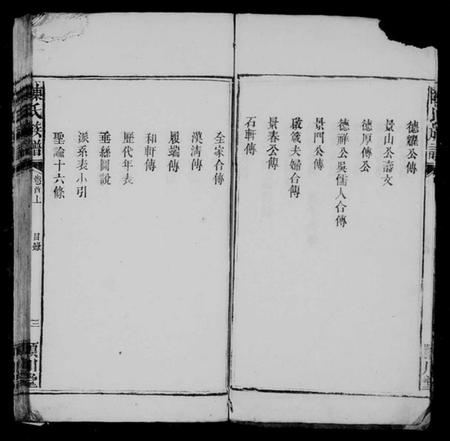 陳氏族譜
德耀公傳
景山公誄文
德厚傳公
德祥公吳儒人合傳
景門公傳
啟戔夫婦合傳
景春公傳
石軒傳
全家合傳
漢清傳
履端傳
和軒傳
歷代年表
垂絲圖說
派系表小引
聖諭十六條
陳氏族譜
卷首上
目錄
三
潁川堂